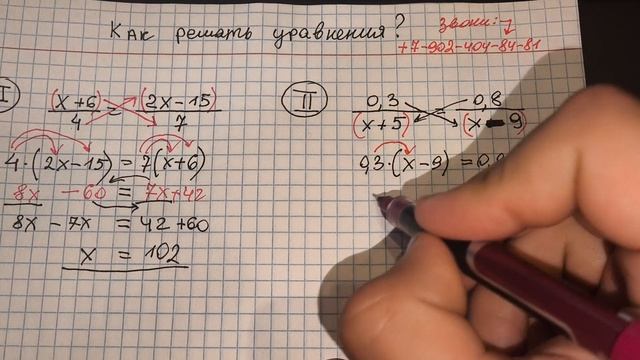 Как решать уравнения?
Звони:
+7-902-404-84-81
I
(x+6) = (2x-15)
4 7
4·(2x-15) = 7(x+6)
8x - 60 = 7x+42
8x - 7x = 42+60
x = 102
II
0,3 = 0,8
(x+5) (x-9)
0,3·(x-9) = 0,